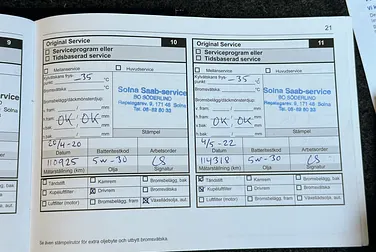 21
9
Original Service 10
Serviceprogram eller
Tidsbaserad service
Mellanservice Huvudservice
Kylvätskans frys- -35 °C
Bromsvätska
Solna Saab-service
BO SÖDERLIND
Repslagarev. 9, 171 48 Solna
Tel. 08-83 80 33
Bromsbelägg/däckmönsterdjup:
v. fram mm
OK OK
v. bak mm
Stämpel
20/4-20
Datum Batteritest Bromstest
110925 5w-30 LS
Mätarställning (km) Olja Signatur
Tändstift Kamrem Bromsbelägg, bak
Kupéluftfilter Drivrem Bromsvätska
Luftfilter (motor) Bromsbelägg, fram Växellådsolja, aut.
Original Service 11
Serviceprogram eller
Tidsbaserad service
Mellanservice Huvudservice
Kylvätskans frys- -35 °C
punkt
Bromsvätska
Solna Saab-service
BO SÖDERLIND
Repslagarev. 9, 171 48 Solna
Tel. 08-83 80 33
Bromsbelägg/däckmönsterdjup:
v. fram mm
OK OK
v. bak mm
Stämpel
4/5-22
Datum
114318 5w-30 LS
Mätarställning (km) Olja Signatur
Tändstift Kamrem Bromsbelägg, bak
Kupéluftfilter Drivrem Bromsvätska
Luftfilter (motor) Bromsbelägg, fram Växellådsolja, aut.
Se även stämpelrutor för extra oljebyte och utbytt bromsvätska.